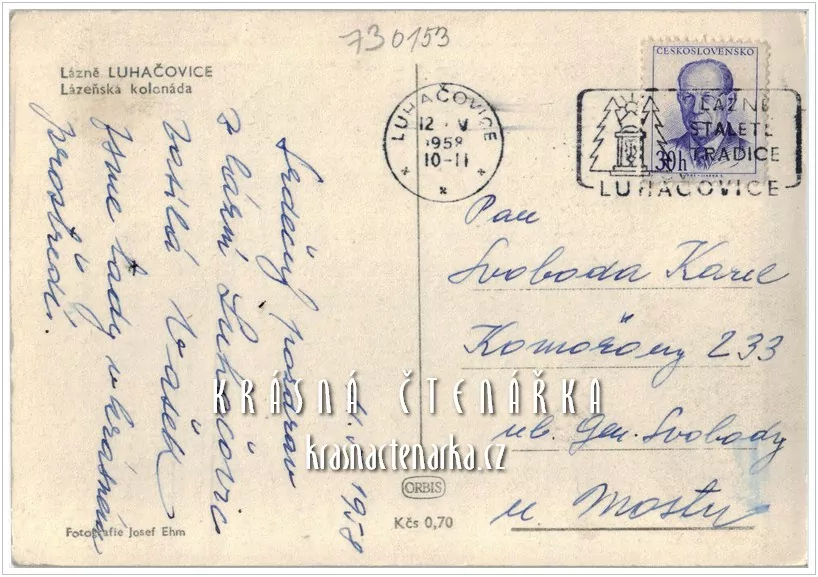 730153
Lázně LUHAČOVICE
Lázeňská kolonáda
LUHAČOVICE
12. V
1958
10-11
* * *
ČESKOSLOVENSKO
30h
LÁZNĚ
STALETÉ
TRADICE
LUHAČOVICE
Srdečný pozdrav
z lázní Luhačovic
zasílá Vašek
Jsme tady v krásném
prostředí.
1958
Pan
Svoboda Karel
Komořany 233
ul. Gen. Svobody
u Mostu
KRÁSNÁ ČTENÁŘKA
krasnactenarka.cz
ORBIS
Kčs 0,70
Fotografie Josef Ehm